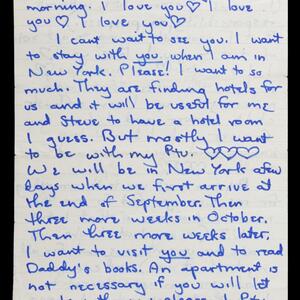 morning. I love you♡ I love
you♡ I love you♡
I cant wait to see you. I want
to stay with you when I am in
New York. Please! I want to so
much. They are finding hotels for
us and it will be useful for me
and Steve to have a hotel room
I guess. But mostly I want
to be with my Ptv. ♡♡♡♡
We will be in New York a few
days when we first arrive at
the end of September. Then
three more weeks in October.
Then three more weeks later,
I want to visit you and to read
Daddy's books. An apartment is
not necessary if you will let